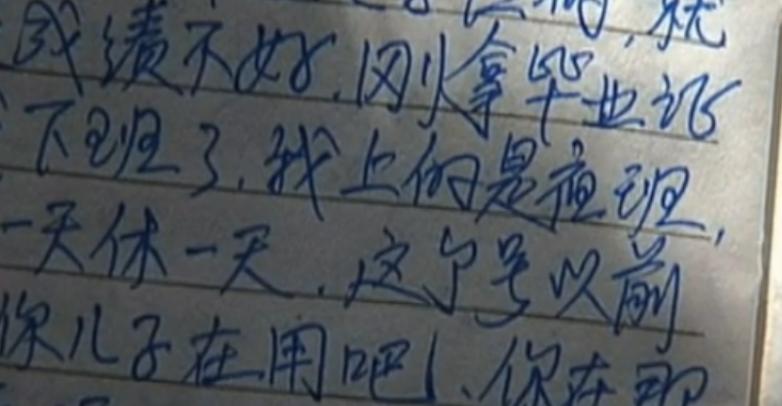 的，就
成绩不好，刚拿毕业证
下班了，我上的是夜班，
一天休一天，这个号以前
你儿子在用吧！你在那